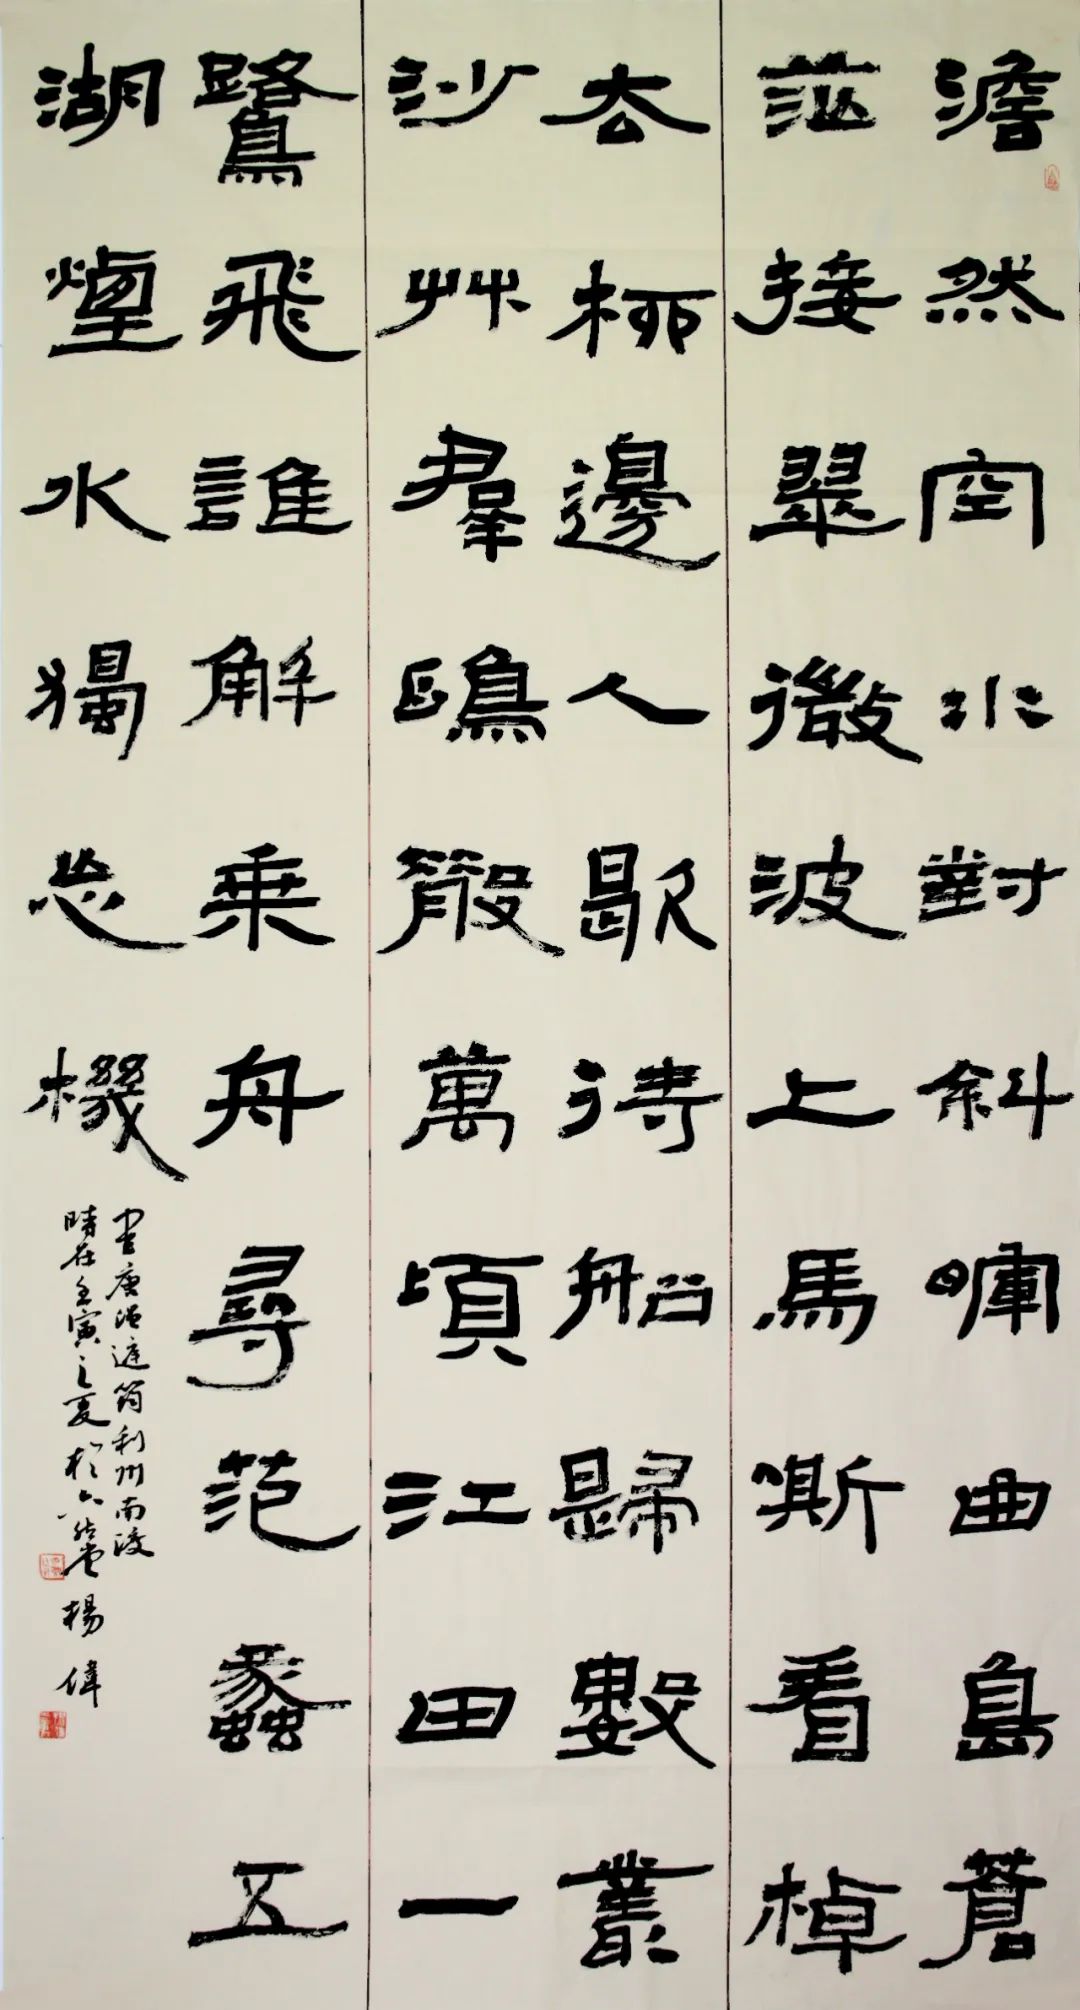 澹然空水對斜暉曲島蒼
茫接翠微波上馬嘶看棹
去柳邊人歇待船歸數叢
沙艸羣鷗散萬頃江田一
鷺飛誰解乘舟尋范蠡五
湖煙水獨忘機
書唐温庭筠利州南渡
時在壬寅之夏於 楊偉